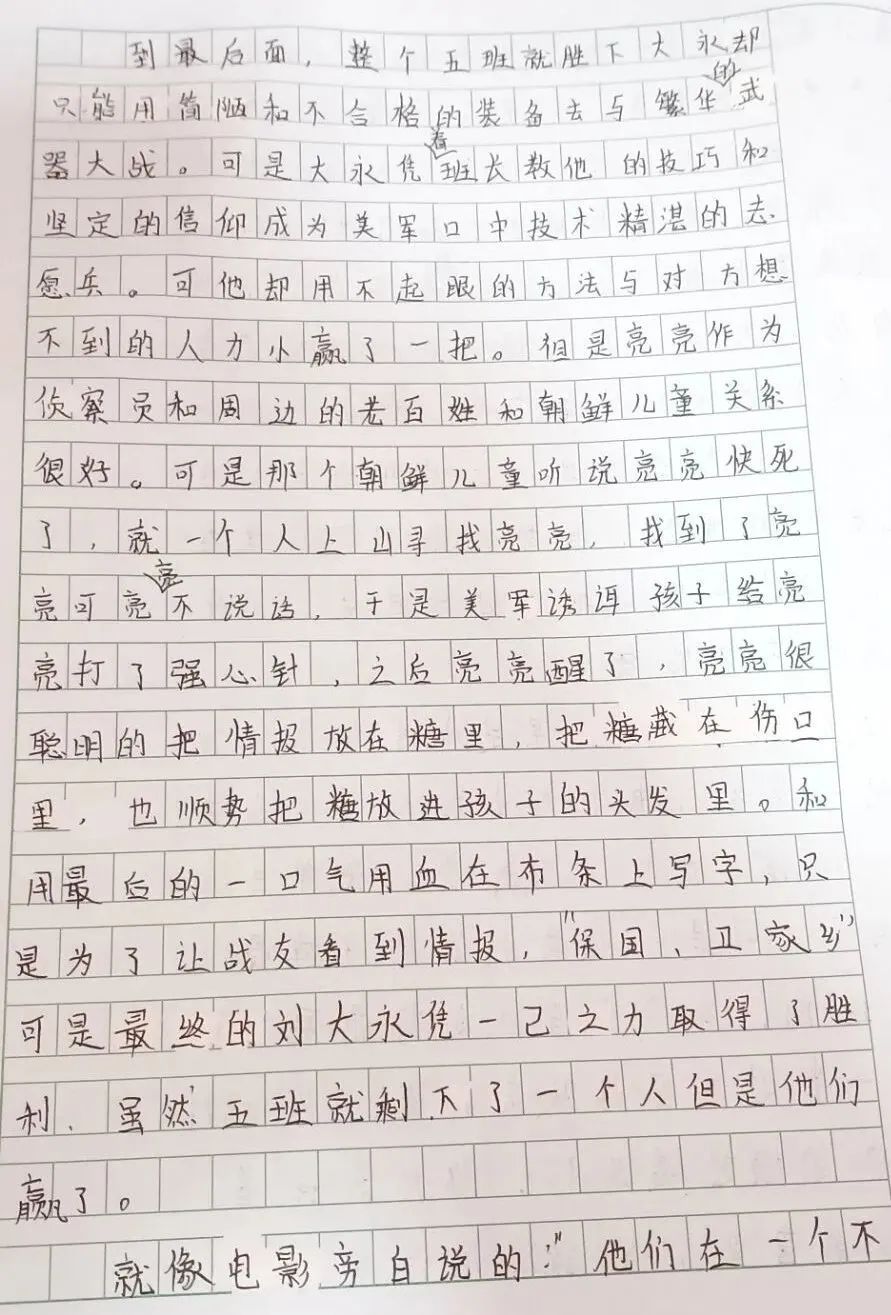 到最后面，整个五班就胜下大永却
只能用简陋和不合格的装备去与繁华的武
器大战。可是大永凭着班长教他的技巧和
坚定的信仰成为美军口中技术精湛的志
愿兵。可他却用不起眼的方法与对方想
不到的人力小赢了一把。但是亮亮作为
侦察员和周边的老百姓和朝鲜儿童关系
很好。可是那个朝鲜儿童听说亮亮快死
了，就一个人上山寻找亮亮，找到了亮
亮可亮亮不说话，于是美军诱洱孩子给亮
亮打了强心针，之后亮亮醒了，亮亮很
聪明的把情报放在糖里，把糖藏在伤口
里，也顺势把糖放进孩子的头发里。和
用最后的一口气用血在布条上写字，只
是为了让战友看到情报，“保国、卫家乡”
可是最终的刘大永凭一己之力取得了胜
利、虽然五班就剩下了一个人但是他们
赢了。
就像电影旁白说的：“他们在一个不